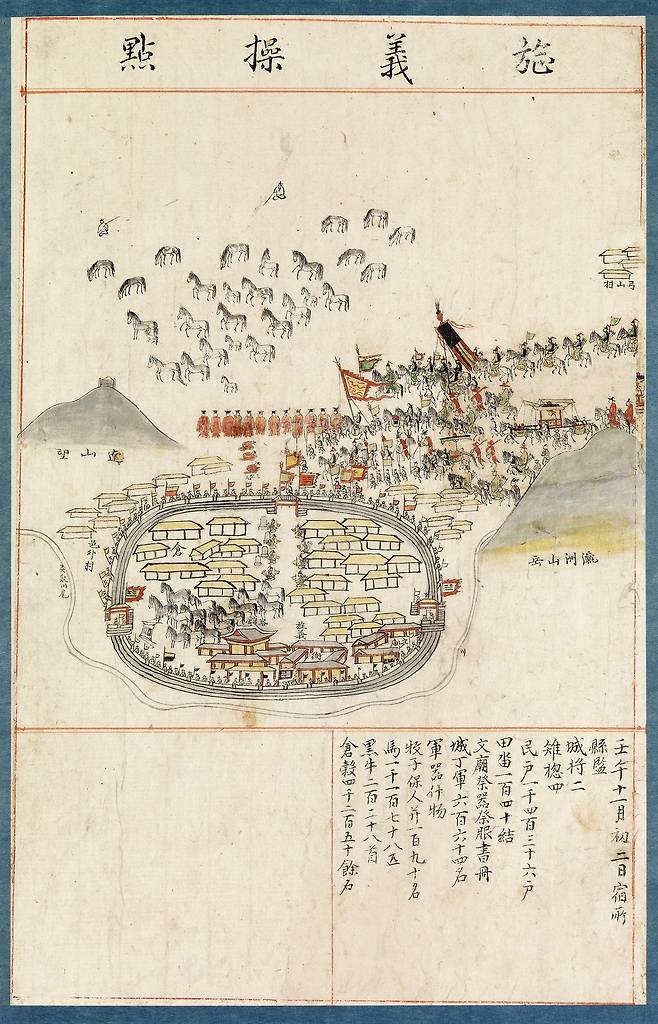 旌義操點
弓山村
達山望
瀛洲山岳
邑外村
倉
衙
壬午十一月初二日宿所
縣監
城將二
雉摠四
民戶一千四百三十六戶
田畓一百四十結
文廟祭器祭服書冊
城丁軍六百六十四名
軍器什物
牧子保人幷一百九十名
馬一千一百七十八匹
黑牛二百二十八首
倉穀四千二百五十餘石